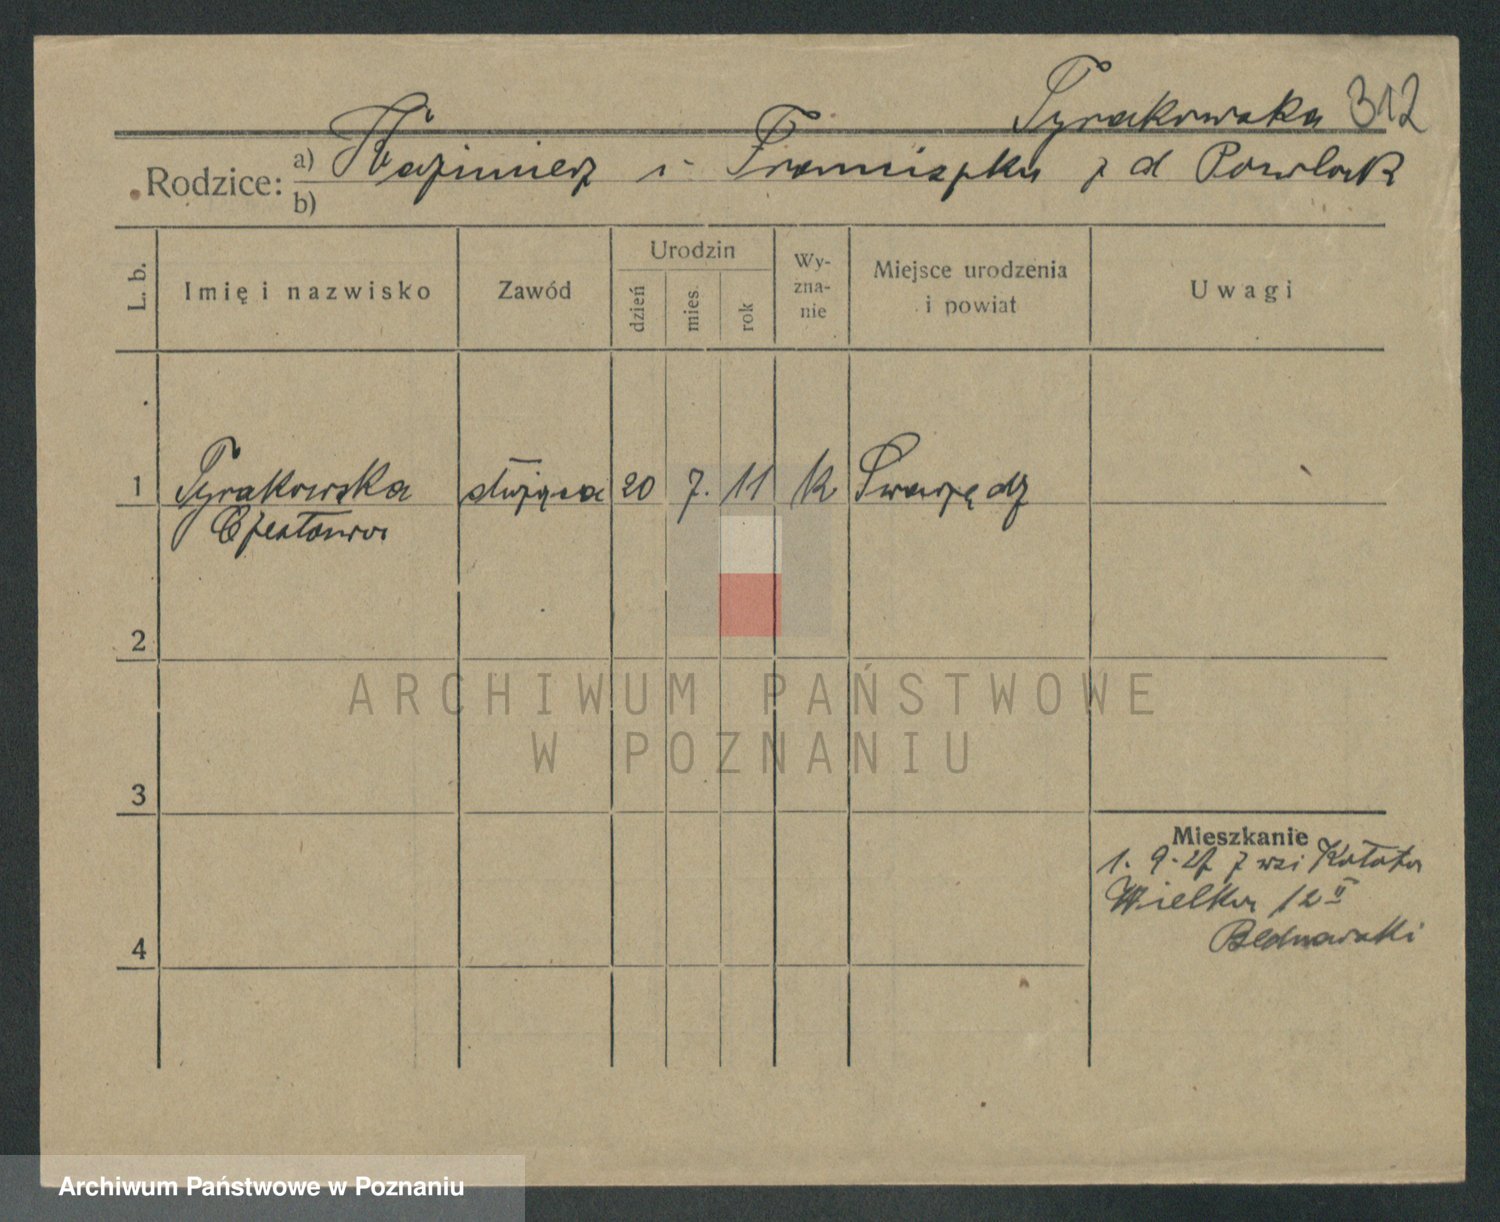 Tyrakowska 312
Rodzice: a) Kazimierz i Franciszka z d Pawlak
b)
L. b. Imię i nazwisko Zawód Urodzin dzień mies. rok Wy-zna-nie Miejsce urodzenia i powiat Uwagi
1 Tyrakowska służąca 20 7. 11 k Swarzędz
Czesława
2
ARCHIWUM PAŃSTWOWE
W POZNANIU
3
Mieszkanie
1. 9. 27 z wsi
4 Wielka 12 II
Bednarski
Archiwum Państwowe w Poznaniu